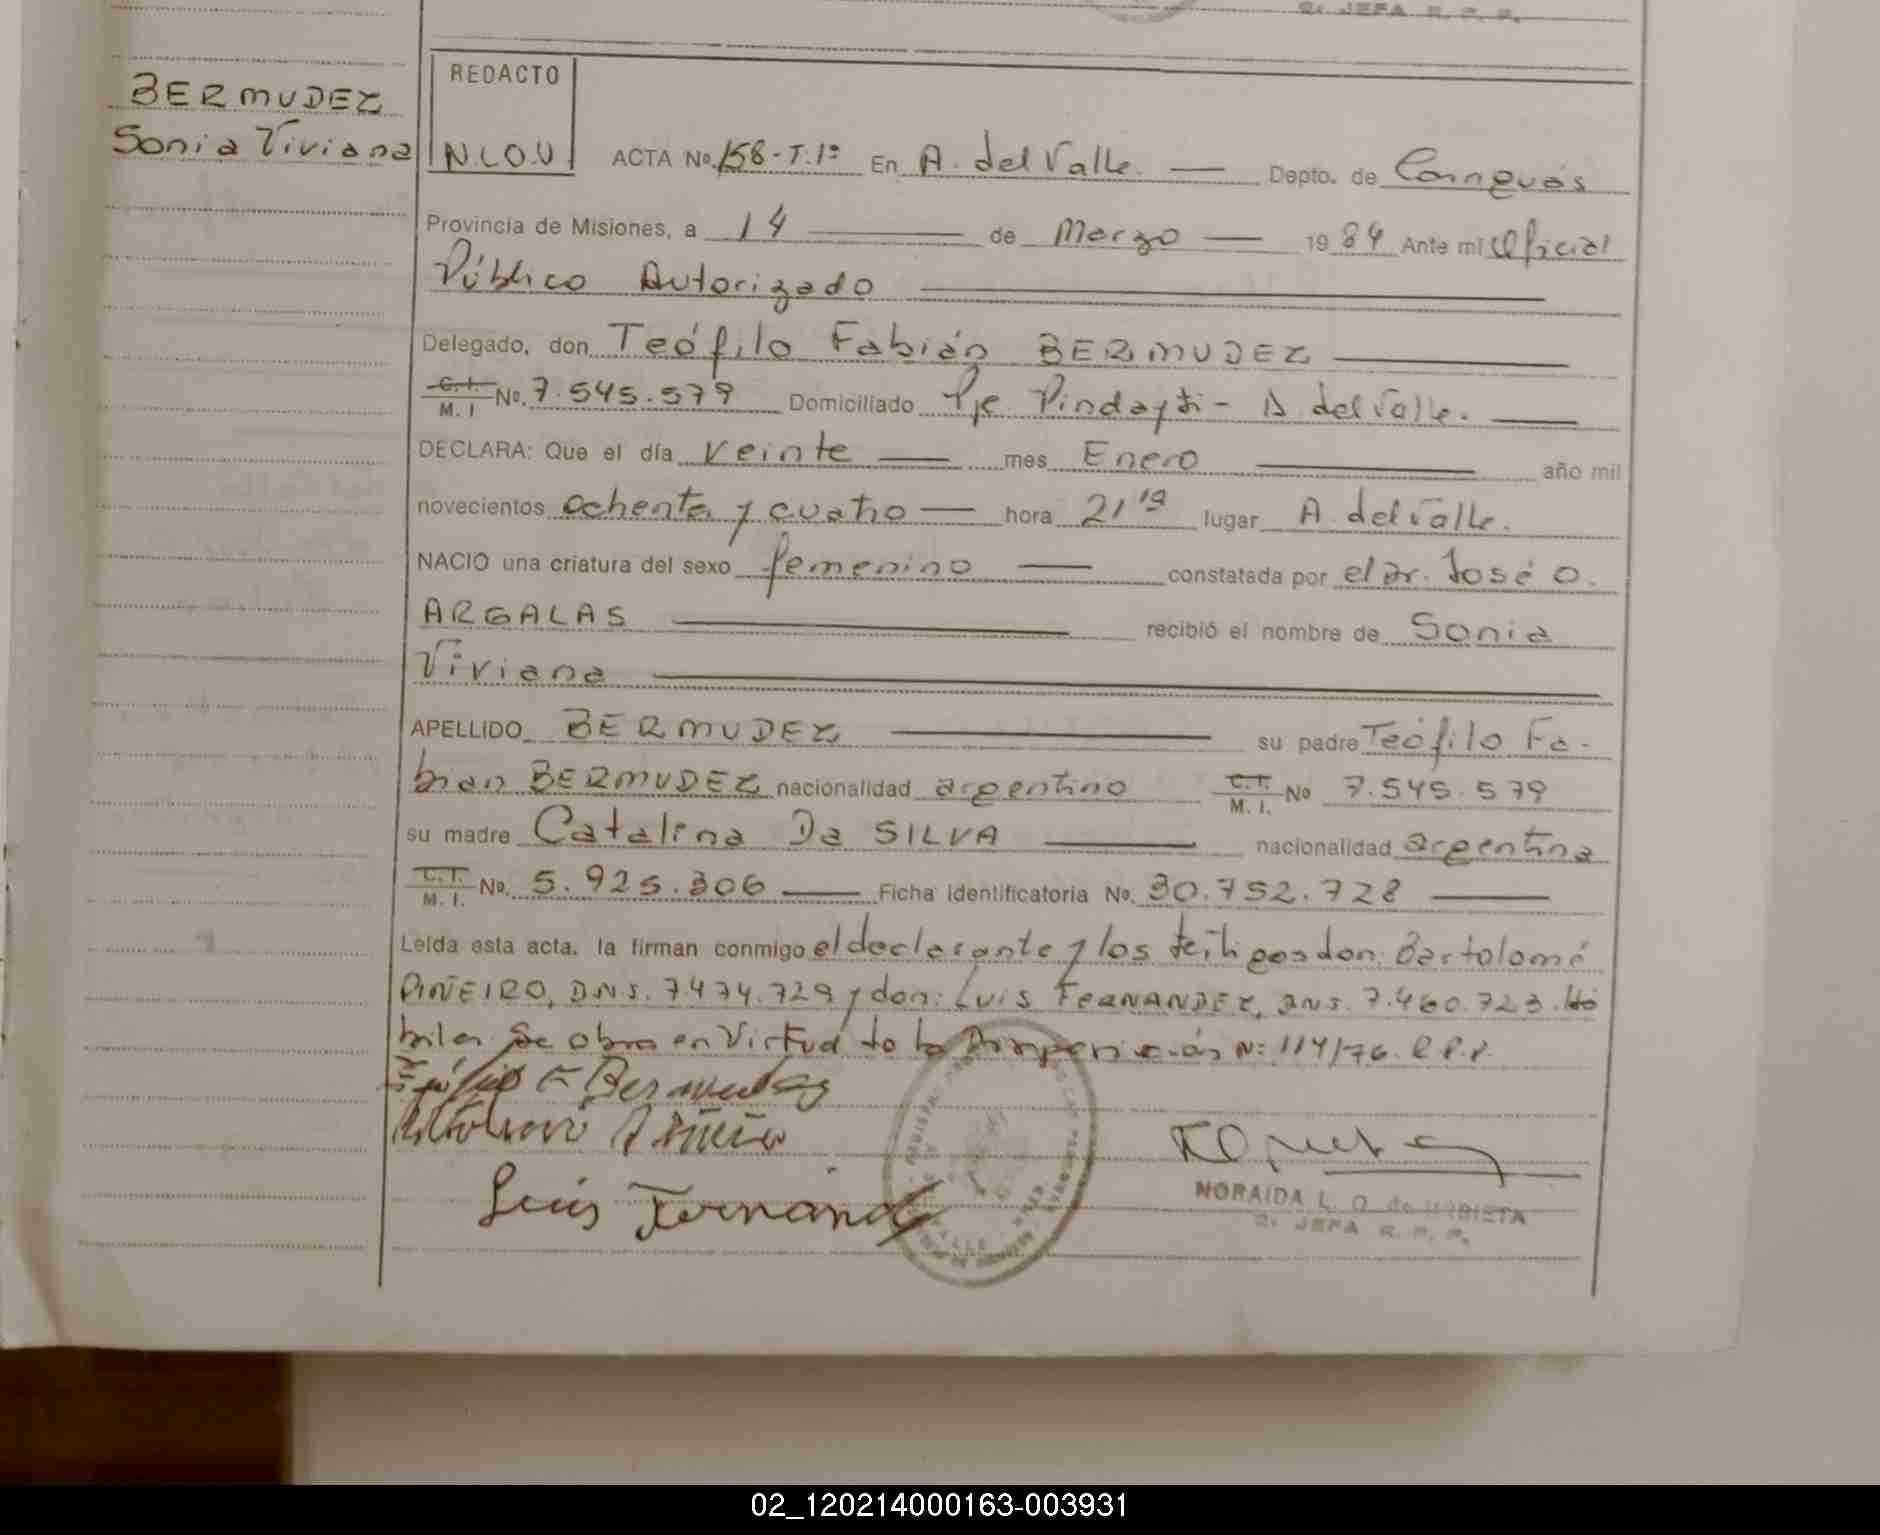 2: JEFA R. P. P.
BERMUDEZ
Sonia Viviana
REDACTO
N.L.O.U
ACTA No. 158-T.1º En A. del Valle. Depto. de Cainguás
Provincia de Misiones, a 14 de Marzo 1984 Ante mí Oficial
Público Autorizado
Delegado, don Teófilo Fabián BERMUDEZ
C.I. M. I No. 7.545.579 Domiciliado Pje. Pindayti - A. del Valle.
DECLARA: Que el día veinte mes Enero año mil
novecientos ochenta y cuatro hora 21 19 lugar A. del Valle.
NACIO una criatura del sexo femenino constatada por el Dr. José O.
ARGALAS recibió el nombre de Sonia
Viviana
APELLIDO BERMUDEZ su padre Teófilo Fa-
bian BERMUDEZ nacionalidad argentino C.I. M. I. No 7.545.579
su madre Catalina Da SILVA nacionalidad argentina
C.I. M. I. No. 5.925.306 Ficha identificatoria No. 30.752.728
Leída esta acta, la firman conmigo el declarante y los testigos don: Bartolomé
PIÑEIRO, DNI. 7.474.729 y don: Luis FERNANDEZ, DNI. 7.460.723. Há
biles Se obra en Virtud to la Disposición Nº 114/76. R.P.P.
Bermudez
Luis Fernand
NORAIDA L. O. de URBIETA
2: JEFA R. P. P.
02_120214000163-003931